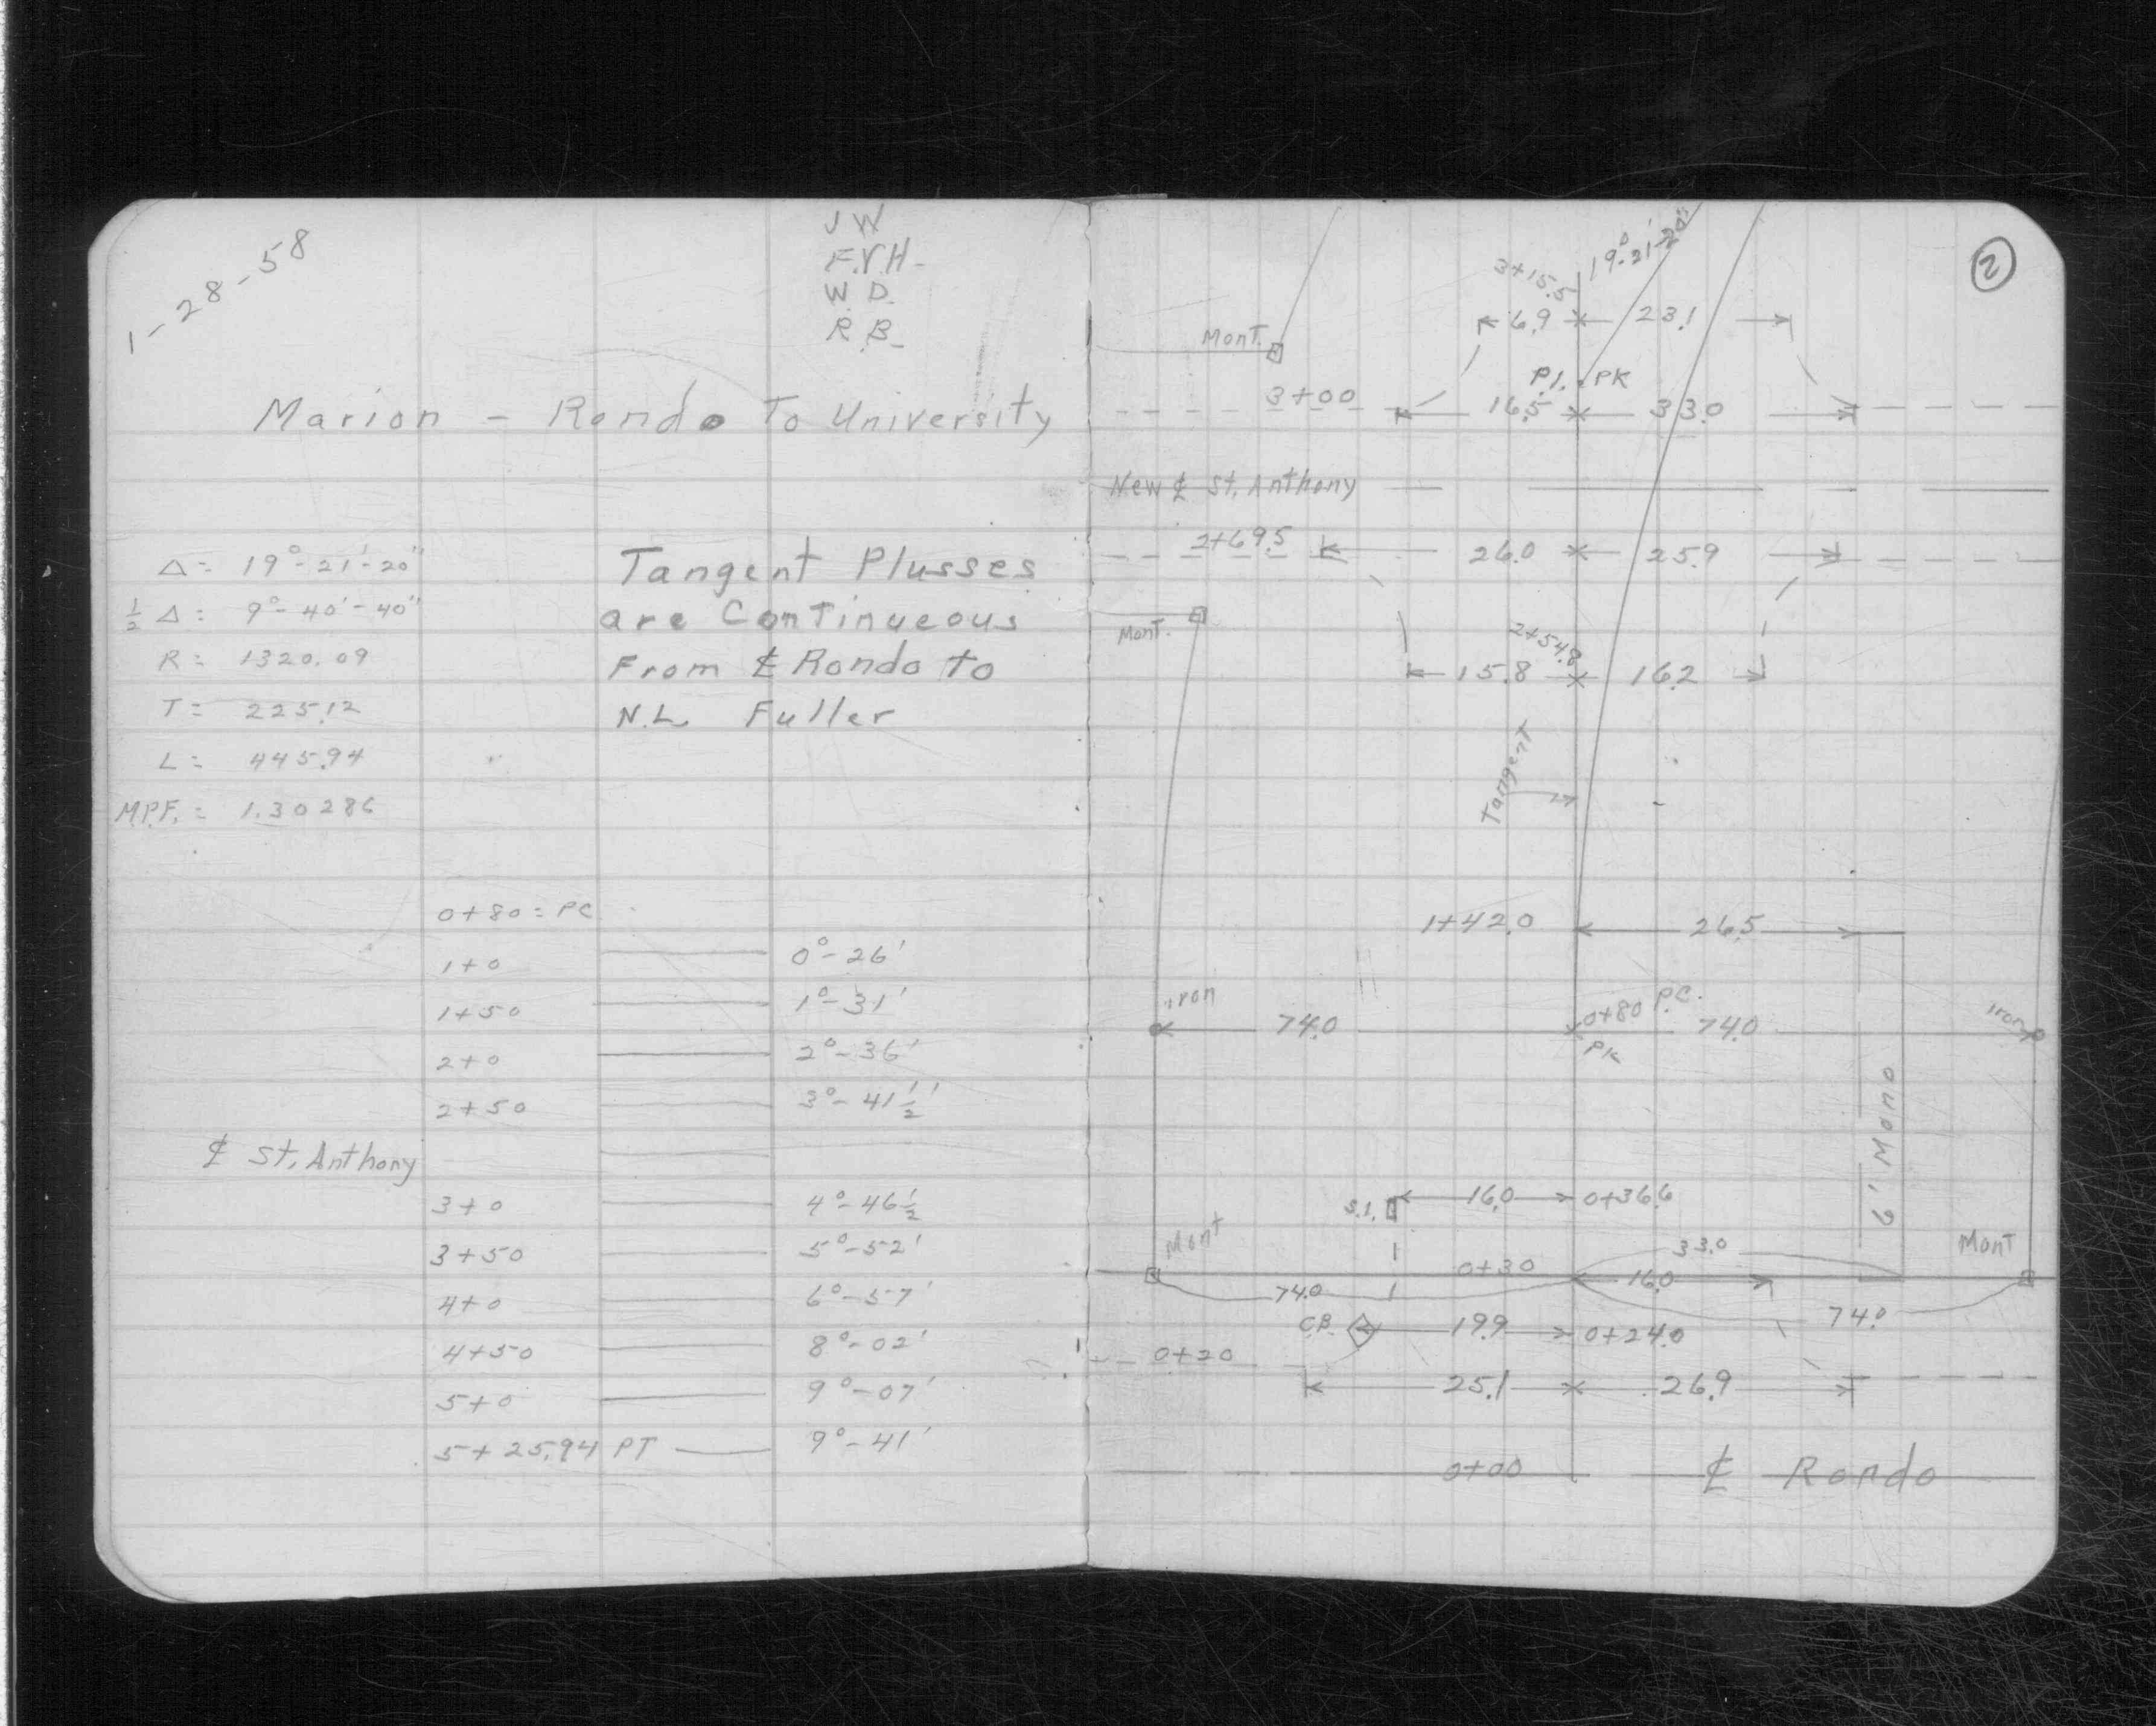 1-28-58
J W
F.V.H-
W D.
R. B-
Marion - Rondo To University
Δ= 19°-21'-20"
½ Δ= 9°-40'-40"
R= 1320.09
T= 225.12
L= 445.94
M.P.F.= 1.30286
Tangent Plusses
are Continueous
From ℄ Rondo to
N.L. Fuller
0+80 = PC
1+0 0°-26'
1+50 1°-31'
2+0 2°-36'
2+50 3°-41½'
℄ St. Anthony
3+0 4°-46½
3+50 5°-52'
4+0 6°-57'
4+50 8°-02'
5+0 9°-07'
5+25.94 PT 9°-41'
2
3+15.5 19°-21'-20"
6.9 23.1
Mont.
P.I. PK
3+00 16.5 33.0
New ℄ St. Anthony
2+69.5 26.0 25.9
Mont.
2+54.8
15.8 16.2
Tangent
1+42.0 26.5
iron 74.0 0+80 P.C. 74.0 iron
PK
6' Mono
S.I. 16.0 0+36.6
Mont 33.0 Mont
0+30 16.0
74.0 74.0
C.B. 19.9 0+24.0
0+20
25.1 26.9
0+00 ℄ Rondo